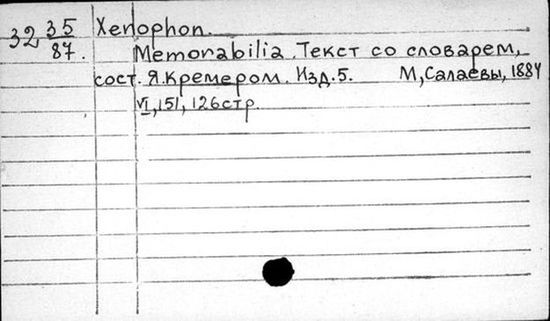 32 35/87. Xenophon.
Memorabilia. Текст со словарем,
сост. Я.Кремером. Изд.5. М,Салаевы,1884
VI,151,126стр.